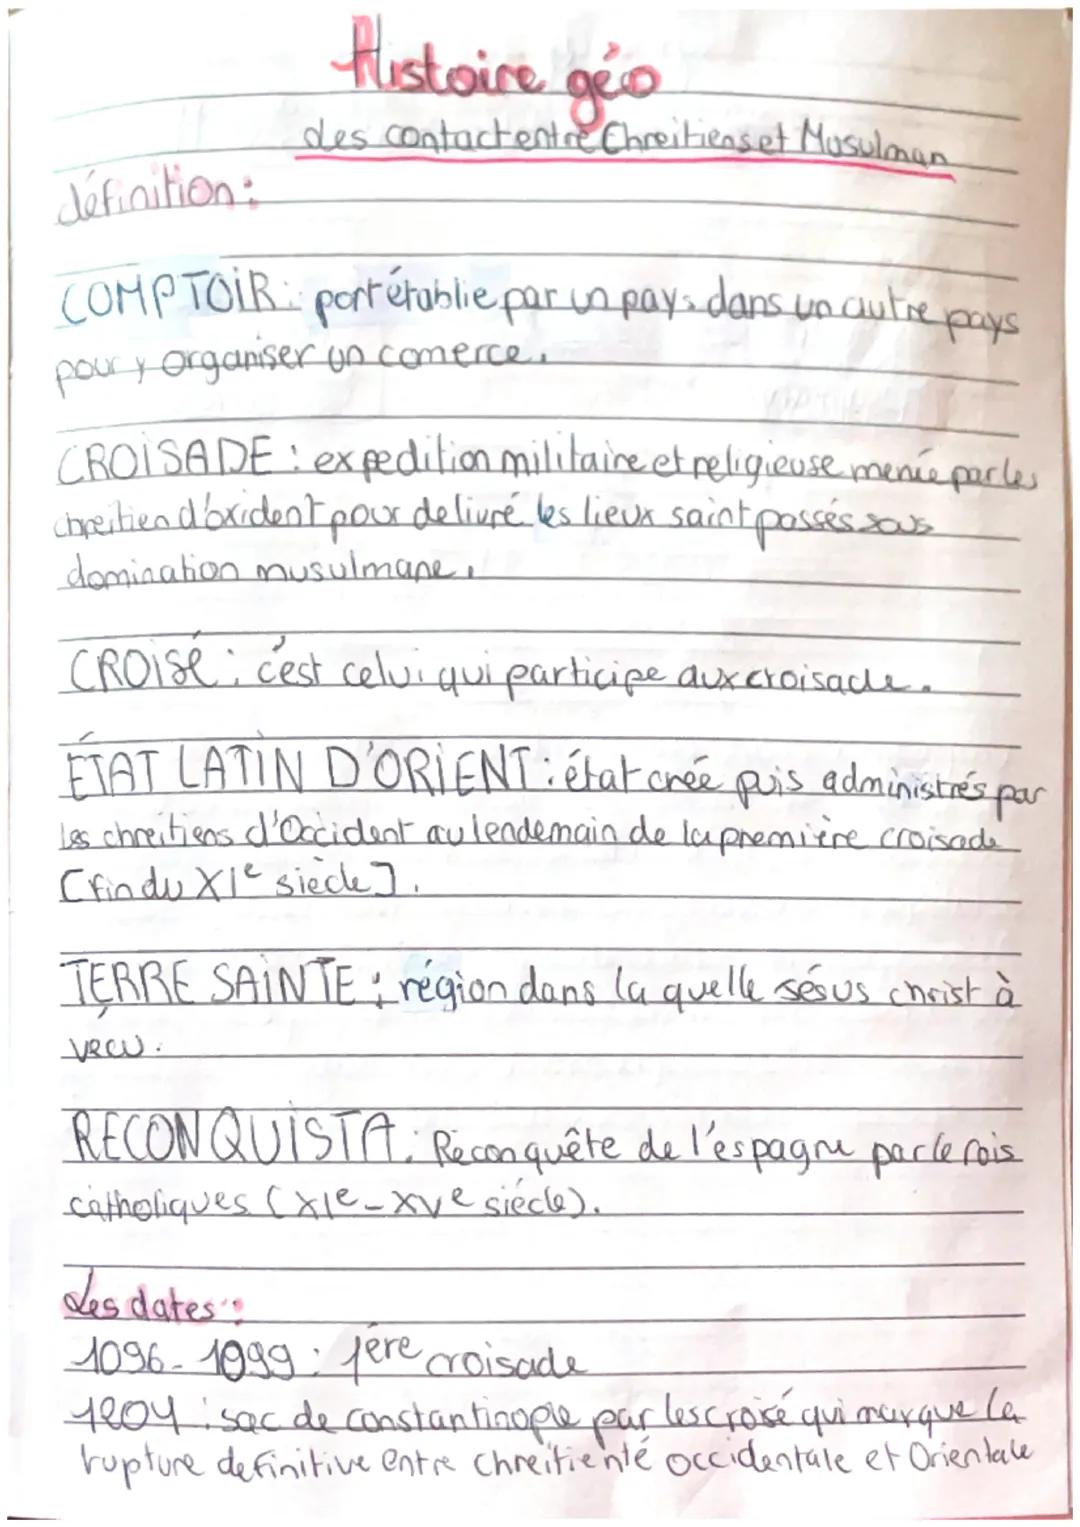 Histoire géo
des contact entre Chreitiens et Musulman
définition :
COMPTOIR : port établie par un pays dans un autre pays
pour y organiser un comerce.
CROISADE : expedition militaire et religieuse menée par les
chreitien d'oxident pour delivré les lieux saint passés sous
domination musulmane.
CROISÉ : c'est celui qui participe aux croisade.
ÉTAT LATIN D'ORIENT : état crée puis administrés par
les chreitiens d'Occident au lendemain de la première croisade
[fin du XIe siècle].
TERRE SAINTE : région dans la quelle sésus christ à
vécu.
RECONQUISTA : Reconquête de l'espagne par le rois
catholiques (XIe-XVe siécle).
Les dates :
1096-1099 : 1ère croisade
1204 : sac de constantinople par les croisé qui marque la
rupture definitive entre chreitienté occidentale et Orientale